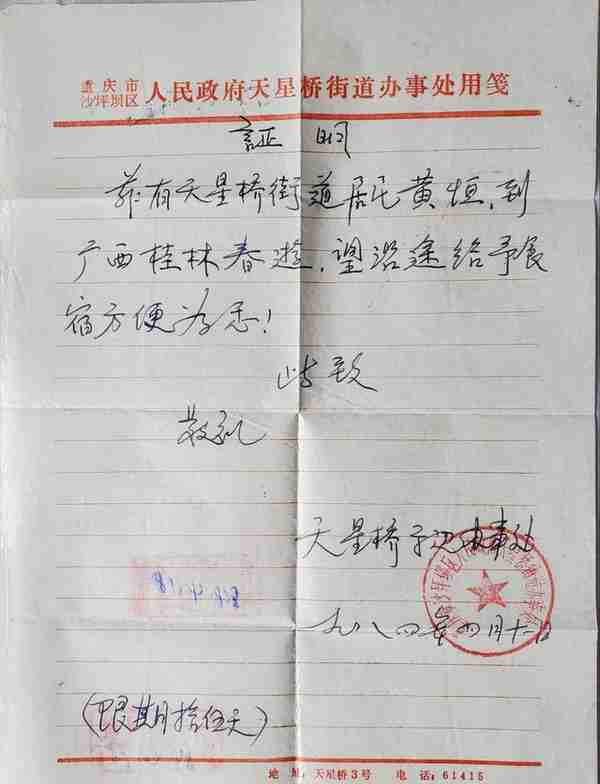 重庆市
沙坪坝区 人民政府天星桥街道办事处用笺
証明
兹有天星桥街道居民黄恒,到
广西桂林春遊,望沿途给予食
宿方便为岙!
此致
敬礼
天星桥办事处
一九八四年四月十一日
(限期拾伍天)
地址:天星桥3号 电话:61415